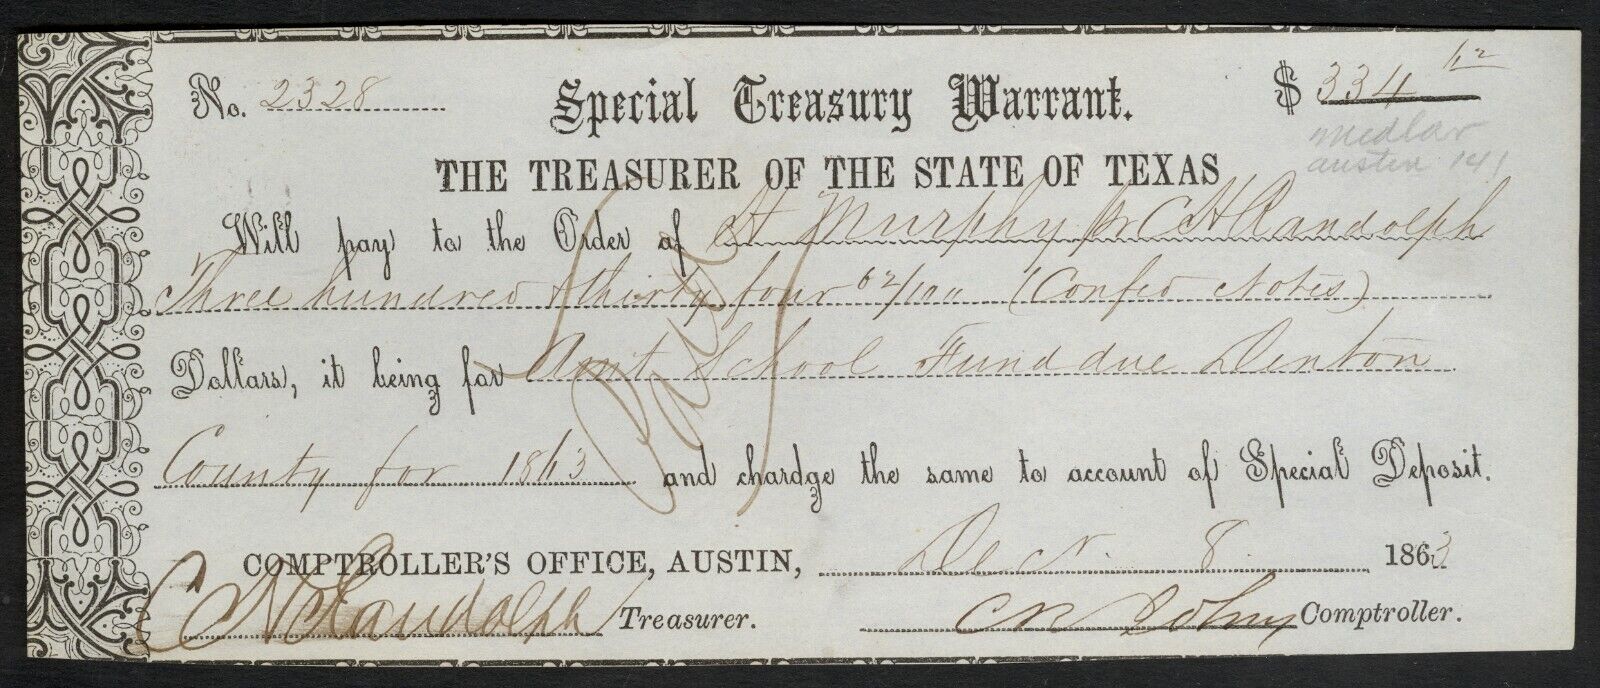 No. 2328 Special Treasury Warrant. $ 334 62
medlar
austin 141
THE TREASURER OF THE STATE OF TEXAS
Will pay to the Order of H Murphy pr C H Randolph
Three hundred & thirty four 62/100 (Confed Notes)
Dollars, it being for Amt School Fund due Denton
County for 1863 and chardge the same to account of Special Deposit.
COMPTROLLER'S OFFICE, AUSTIN, Dec 8 1863
C H Randolph Treasurer. C R Johns Comptroller.